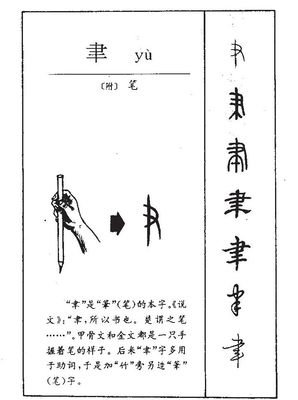 聿 yù
〔附〕 笔
“聿”是“筆”(笔)的本字。《说
文》：“聿，所以书也。楚谓之笔
……”。甲骨文和金文都是一只手
握着笔的样子。后来“聿”字多用
于助词，于是加“竹”旁另造“筆”
(笔)字。